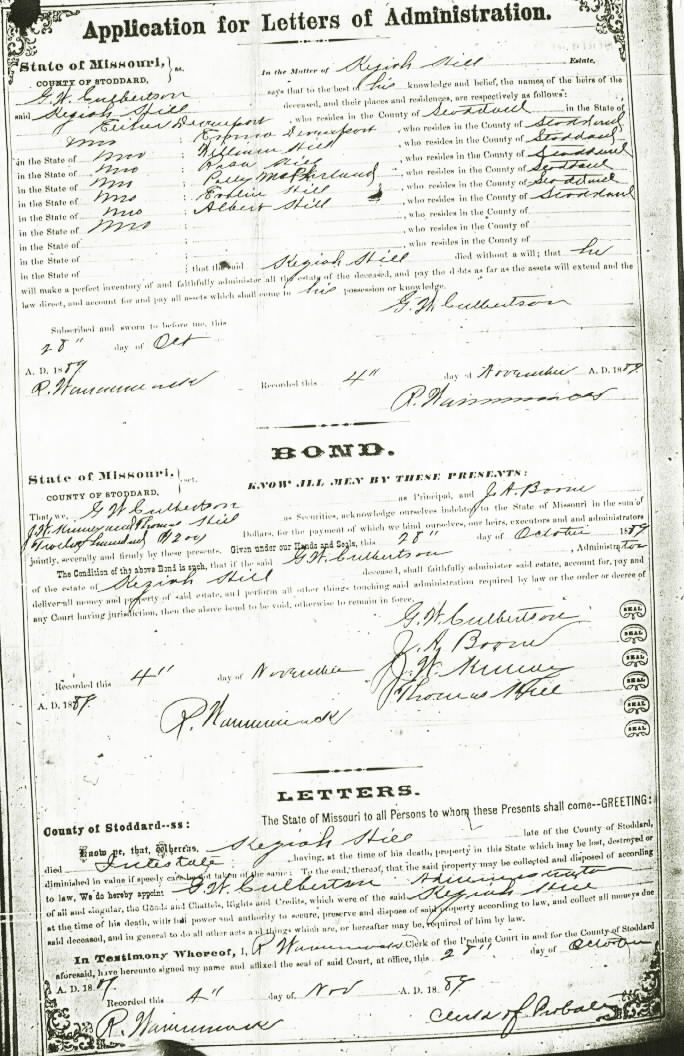 Application for Letters of Administration.
State of Missouri, } ss.
COUNTY OF STODDARD,
In the Matter of Keziah Hill Estate,
G. W. Culbertson says that to the best of his knowledge and belief, the names of the heirs of the
said Keziah Hill deceased, and their places and residences, are respectively as follows:
Davenport , who resides in the County of Stoddard in the State of
Mo ; Emma Davenport , who resides in the County of Stoddard
in the State of Mo ; William Hill , who resides in the County of Stoddard
in the State of Mo ; Hill , who resides in the County of Stoddard
in the State of Mo ; Polly McFarland , who resides in the County of Stoddard
in the State of Mo ; Hill , who resides in the County of Stoddard
in the State of Mo ; Albert Hill , who resides in the County of Stoddard
in the State of Mo ; , who resides in the County of
in the State of ; , who resides in the County of
in the State of ; , who resides in the County of
in the State of ; that the said Keziah Hill died without a will; that he
will make a perfect inventory of and faithfully administer all the estate of the deceased, and pay the debts as far as the assets will extend and the
law direct, and account for and pay all assets which shall come to his possession or knowledge.
G. W. Culbertson
Subscribed and sworn to before me, this
28" day of Oct
A. D. 1889
R. Wammack
Recorded this 4" day of November A. D. 1889
R. Wammack
BOND.
State of Missouri, } sct.
COUNTY OF STODDARD,
KNOW ALL MEN BY THESE PRESENTS:
That we, G W Culbertson as Principal, and J. A. Boone
J. W. Kinney and Thomas Hill as Securities, acknowledge ourselves indebted to the State of Missouri in the sum of
Twelve hundred Dollars, for the payment of which we bind ourselves, our heirs, executors and administrators
jointly, severally and firmly by these presents. Given under our Hands and Seals, this 28" day of October 1889
The Condition of the above Bond is such, that if the said G. W. Culbertson , Administrator
of the estate of Keziah Hill deceased, shall faithfully administer said estate, account for, pay and
deliver all money and property of said estate, and perform all other things touching said administration required by law or the order or decree of
any Court having jurisdiction, then the above bond to be void, otherwise to remain in force.
G. W. Culbertson SEAL
J. A. Boone SEAL
J. W. Kinney SEAL
Thomas Hill SEAL
SEAL
SEAL
Recorded this 4" day of November
A. D. 1889.
R. Wammack
LETTERS.
County of Stoddard--ss:
The State of Missouri to all Persons to whom these Presents shall come--GREETING:
Know ye, that, Whereas, Keziah Hill late of the County of Stoddard,
died Intestate having, at the time of his death, property in this State which may be lost, destroyed or
diminished in value if speedy care be not taken of the same: To the end, therefore, that the said property may be collected and disposed of according
to law, We do hereby appoint G. W. Culbertson Administrator
of all and singular, the Goods and Chattels, Rights and Credits, which were of the said Keziah Hill
at the time of his death, with full power and authority to secure, preserve and dispose of said property according to law, and collect all moneys due
said deceased, and in general to do all other acts and things which are, or hereafter may be, required of him by law.
In Testimony Whereof, I, R Wammack Clerk of the Probate Court in and for the County of Stoddard
aforesaid, have hereunto signed my name and affixed the seal of said Court, at office, this 28" day of October
A. D. 1889.
Recorded this 4" day of Nov A. D. 1889.
R. Wammack Clerk of Probate